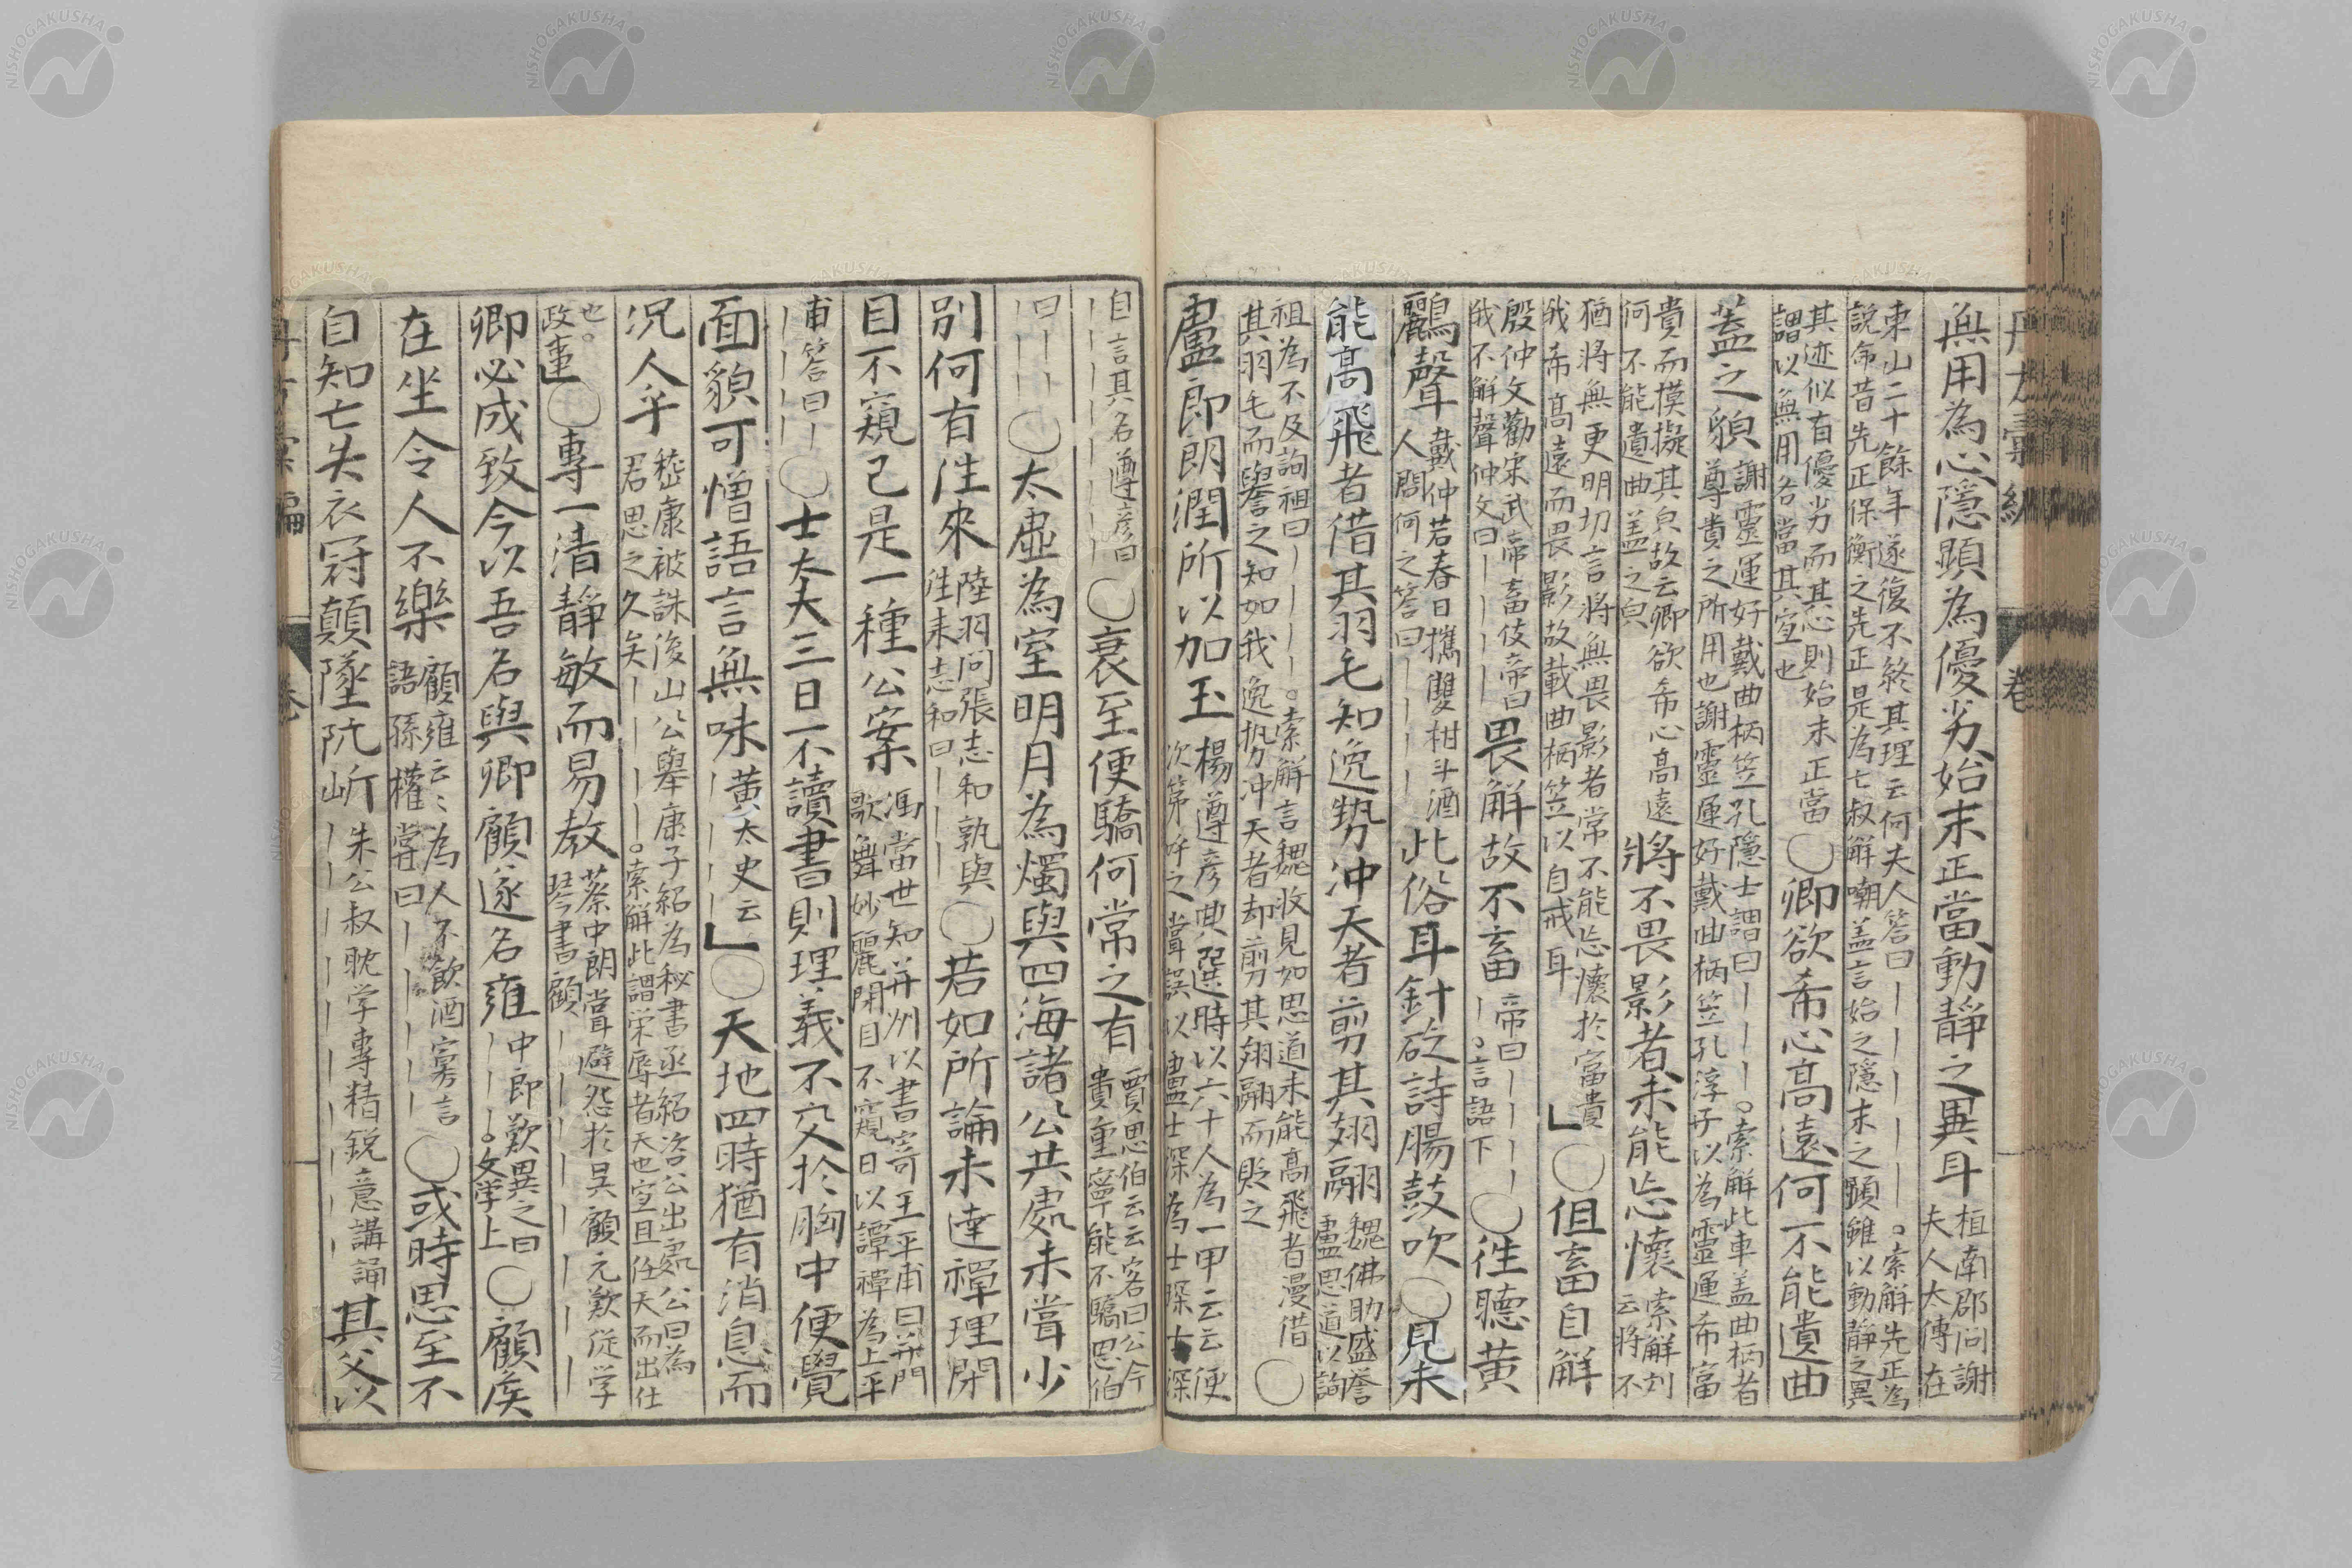 無用為心隱顯為優劣始末正當動靜之異耳 桓南郡問謝
夫人太傅在
東山二十餘年遂復不終其理云何夫人答曰丨丨丨丨丨丨。索解先正為
說命昔先正保衡之先正是為亡叔解嘲盖言始之隱末之顯雖以動靜之異
其迹似有優劣而其心則始末正當
謂以無用各當其宜也
〇卿欲希心高遠何不能遺曲
蓋之貌 謝靈運好戴曲柄笠孔隱士謂曰丨丨丨。索解此車盖曲柄者
尊貴之所用也謝靈運好戴曲柄笠孔淳子以為靈運希富
貴而摸擬其皃故云卿欲希心高遠
何不能遺曲盖之皃
將不畏影者未能忘懷 索解刘
云將不
猶將無更明切言將無畏影者常不能忘懷於富貴
我希高遠而畏影故載曲柄笠以自戒耳
〇但畜自解
殷仲文勸宋武帝畜伎帝曰
我不解聲仲文曰丨丨丨丨
畏解故不畜 帝曰丨丨丨丨
丨。言語下
〇徃聽黃
鸝聲 戴仲若春日攜雙柑斗酒
人問何之答曰丨丨丨丨
此俗耳針砭詩腸鼓吹〇見未
能高飛者借其羽毛知逸勢冲天者剪其翅翮 魏佛助盛誉
盧思道以詢
祖為不及詢祖曰丨丨丨丨。索解言魏收見如思道未能高飛者漫借
其羽毛而譽之知如我逸勢冲天者却剪其翅翮而貶之
〇
盧郎朗潤所以加玉 楊遵彦典選時以六十人為一甲云云便
次第呼之嘗誤以盧士深為士琛士深
自言其名遵彦曰
曰丨丨丨
〇衰至便驕何常之有 賈思伯云云客曰公今
貴重寧能不驕思伯
〇太虛為室明月為燭與四海諸公共處未嘗少
別何有徃來 陸羽问張志和孰與
徃来志和曰丨丨丨
〇若如所論未達禪理閉
目不窺已是一種公案 馮當世知并州以書寄王平甫曰并門
歌舞妙麗閉目不窺日以譚禪為上平
甫答曰丨
丨丨丨丨
〇士大夫三日不讀書則理義不交於胸中便覺
面貌可憎語言無味 黃太史云
丨丨丨丨
〇天地四時猶有消息而
况人乎 嵇康被誅後山公舉康子紹為秘書丞紹咨公出處公曰為
君思之久矣丨丨丨丨。索解此謂栄辱者天也宜且任天而出仕
也。
政事
〇專一清靜敏而易教 蔡中朗嘗避怨於吴顧元歎從学
琴書顧丨丨丨丨丨丨丨
卿必成致今以吾名與卿顧遂名雍 中郎歎異之曰
丨丨丨。文学上
〇顧侯
在坐令人不樂 顧雍云〻為人不飲酒寡言
語孫權嘗曰丨丨丨丨
〇或時思至不
自知亡失衣冠顛墜阬岓 朱公叔耽学專精鋭意講誦
丨丨丨丨丨丨丨丨
其父以